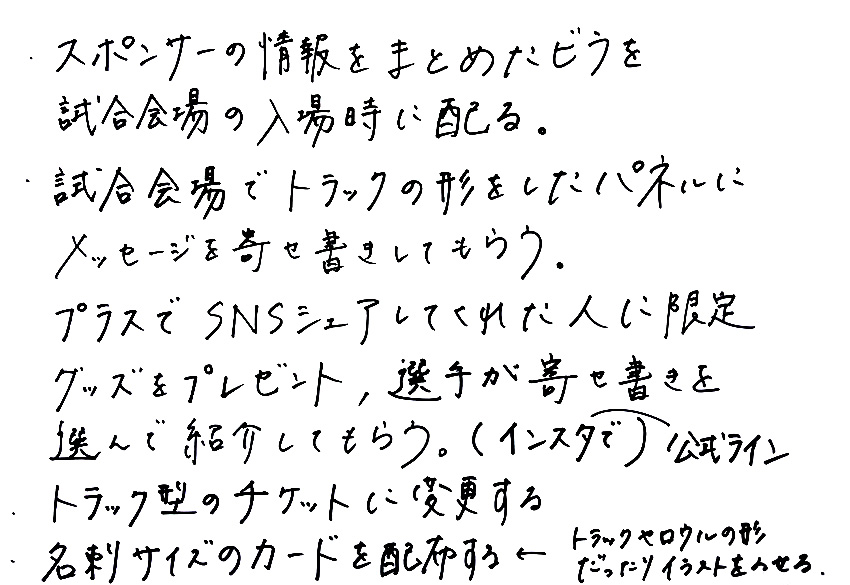 ・スポンサーの情報をまとめたビラを
試合会場の入場時に配る。
・試合会場でトラックの形をしたパネルに
メッセージを寄せ書きしてもらう。
プラスでSNSシェアしてくれた人に限定
グッズをプレゼント,選手が寄せ書きを
選んで紹介してもらう。(インスタで)公式ライン
・トラック型のチケットに変更する
・名刺サイズのカードを配布する←トラックやロウルの形
だったりイラストをのせる.